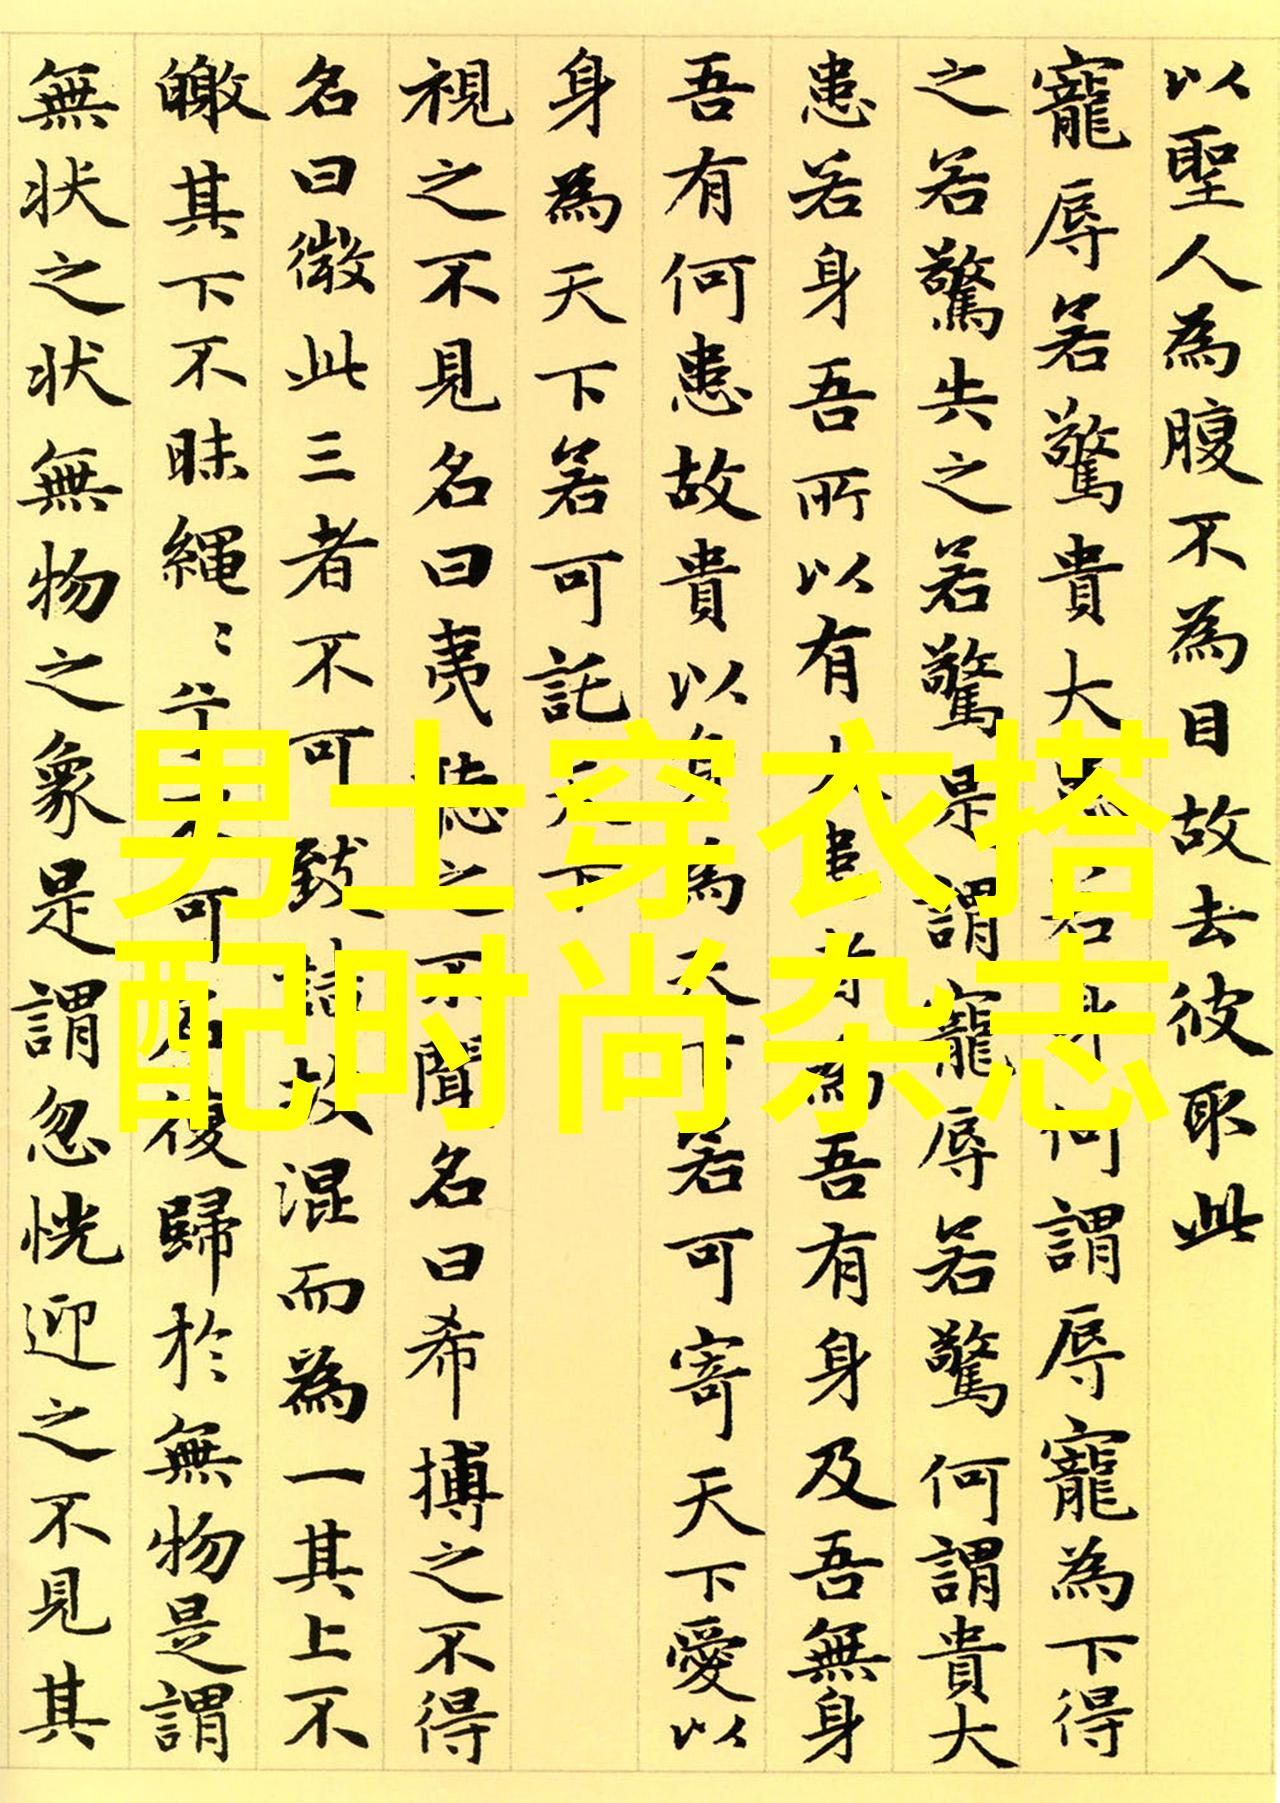 以聖人為腹不為目故去彼取此
寵辱若驚貴大患若身何謂辱寵為下得
之若驚失之若驚是謂寵辱若驚何謂貴大
患若身吾所以有大患者為吾有身及吾無身
吾有何患故貴以身為天下若可寄天下愛以
身為天下若可託天下
視之不見名曰夷聽之不聞名曰希搏之不得
名曰微此三者不可致詰故混而為一其上不
皦其下不昧繩〻兮不可名復歸於無物是謂
無状之状無物之象是謂忽恍迎之不見其
男士穿衣搭
配时尚杂志